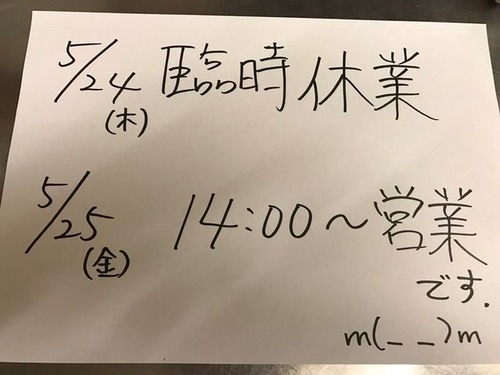 5/24 臨時休業
(木)
5/25 14:00〜営業
(金)
です.
m(_ _)m